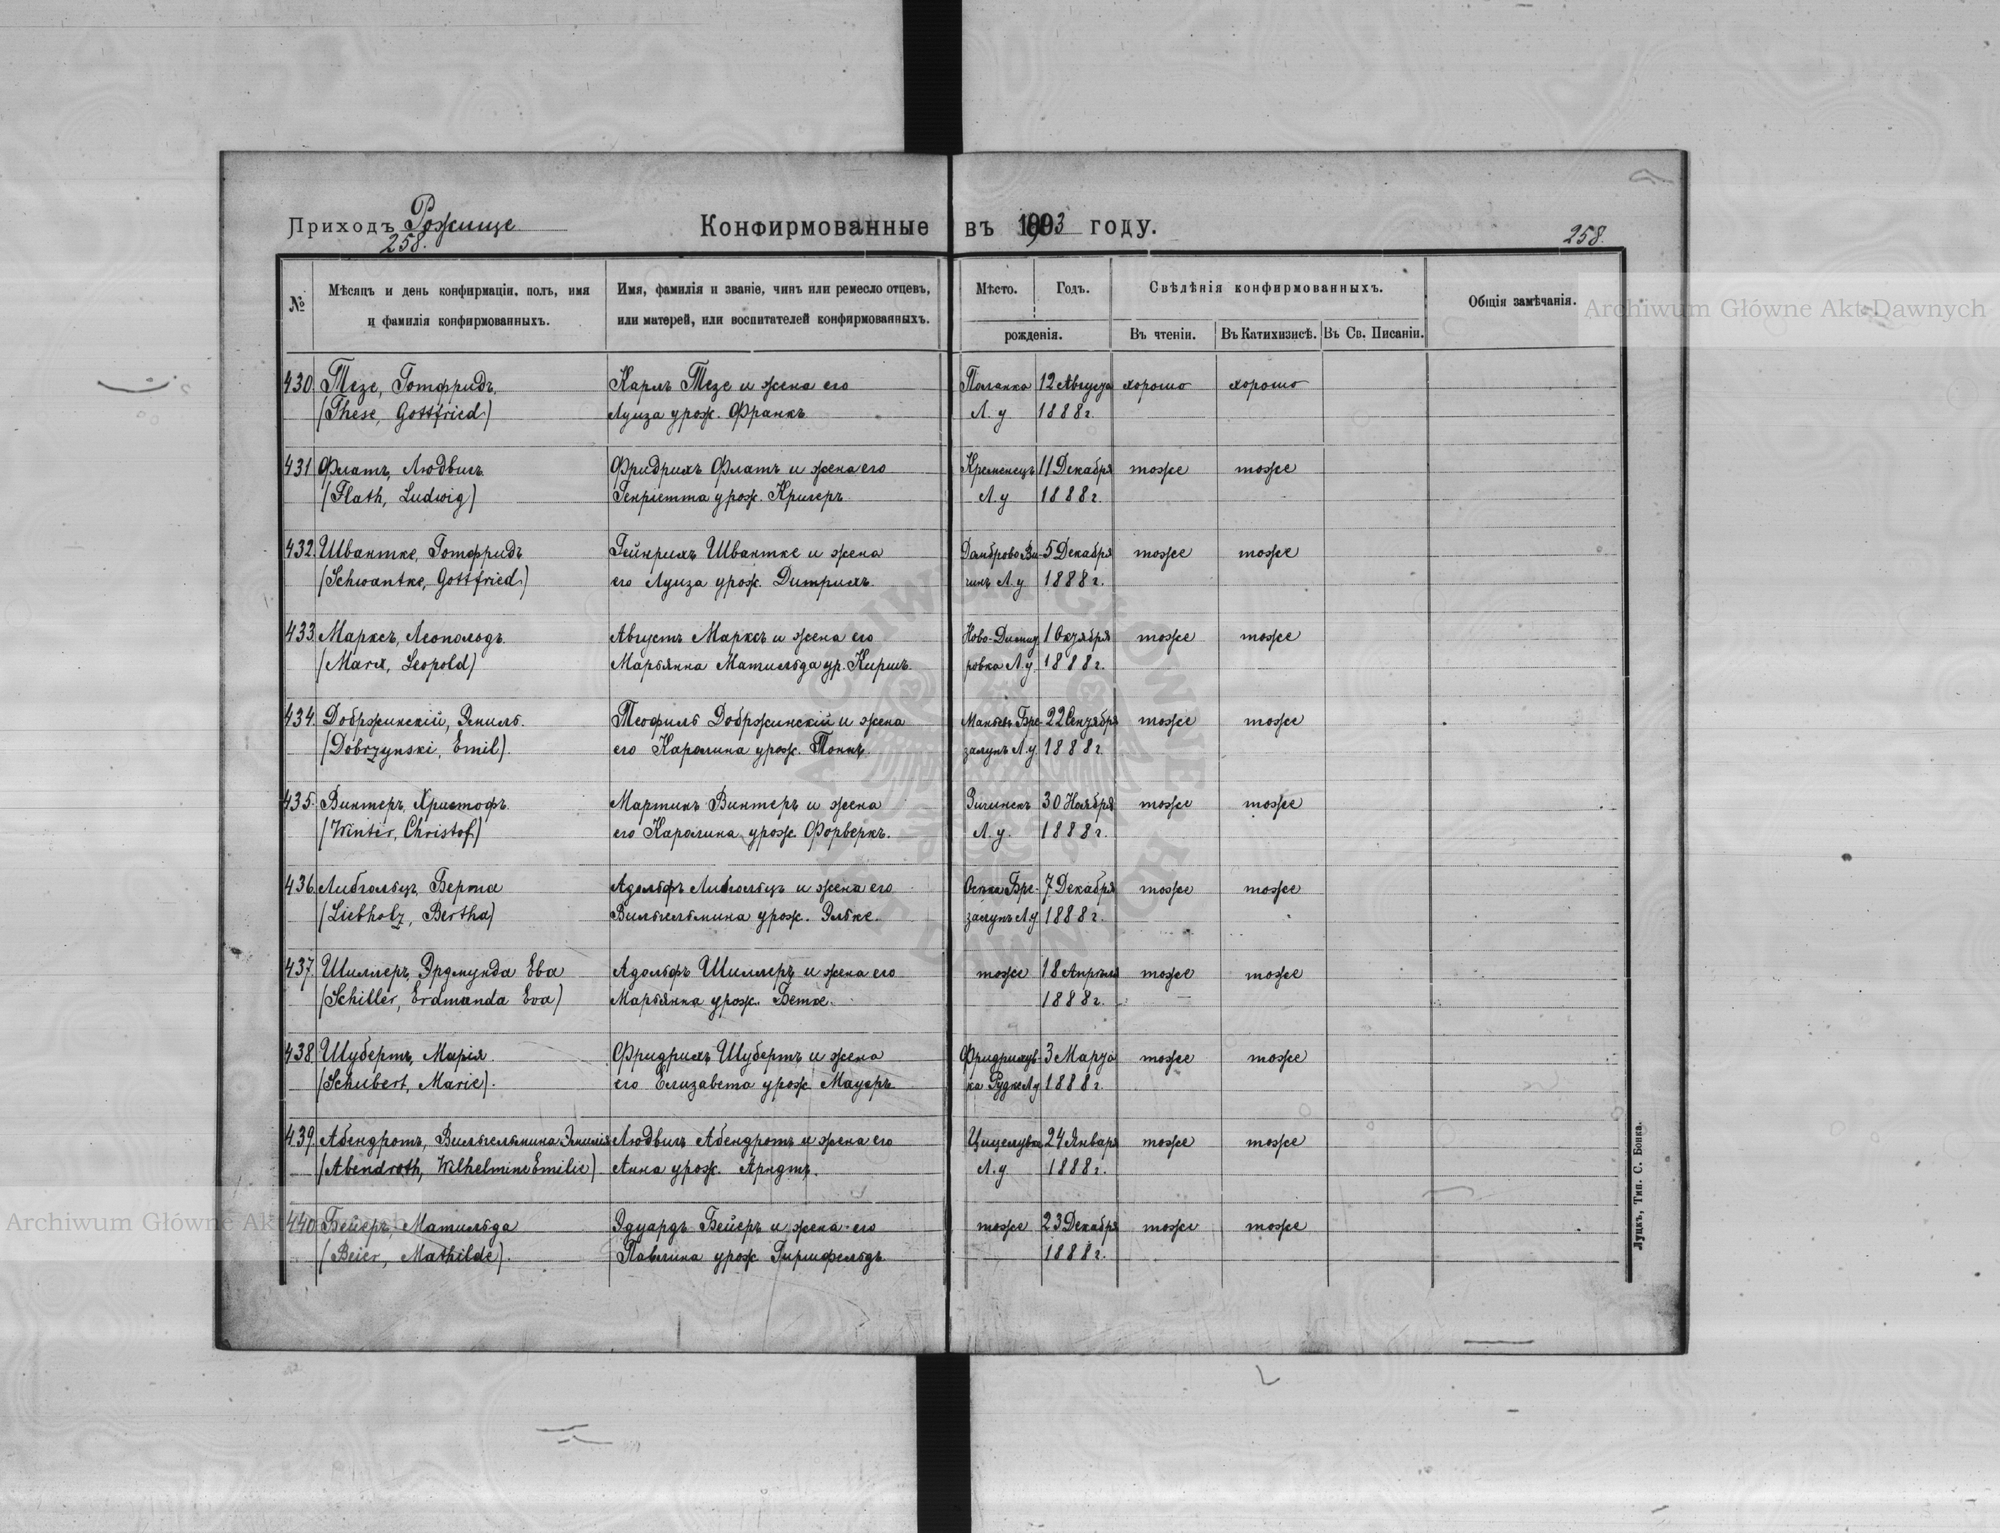 Приходъ Рожище
258.
Конфирмованные въ 1903 году.
258.
№
Мѣсяцъ и день конфирмаціи, полъ, имя
и фамилія конфирмованныхъ.
Имя, фамилія и званіе, чинъ или ремесло отцевъ,
или матерей, или воспитателей конфирмованныхъ.
Мѣсто. Годъ.
рожденія.
Свѣдѣнія конфирмованныхъ.
Въ чтеніи. Въ Катихизисѣ. Въ Св. Писаніи.
Общія замѣчанія.
430. Тезе, Готфридъ. Карлъ Тезе и жена его Поланка 12 Августа хорошо хорошо
(These, Gottfried) Луиза урож. Франкъ Л. у 1888 г.
431 Флатъ, Людвигъ Фридрихъ Флатъ и жена его Кременецъ 11 Декабря тоже тоже
(Flath, Ludwig) Генріетта урож. Кригеръ Л. у 1888 г.
432. Швантке, Готфридъ Гейнрихъ Швантке и жена 5 Декабря тоже тоже
(Schwantke, Gottfried) его Луиза урож. Дитрихъ. Л. у 1888 г.
433. Марксъ, Леопольдъ. Августъ Марксъ и жена его 1 Октября тоже тоже
(Marx, Leopold) Марьянна Матильда ур. Киршъ. ровка Л. у 1888 г.
434. Добржинскій, Эмиль. Теофилъ Добржинскій и жена 22 тоже тоже
(Dobrzynski, Emil). его Каролина урож. Л. у 1888 г.
435. Винтеръ, Христофъ. Мартинъ Винтеръ и жена 30 Ноября тоже тоже
(Winter, Christof) его Каролина урож. Форверкъ. Л. у. 1888 г.
436. Либгольцъ, Берта Адольфъ Либгольцъ и жена его 7 Декабря тоже тоже
(Liebholz, Bertha) Вильгельмина урож. Эльке. Л. у 1888 г.
437. Шиллеръ, Эрдмунда Ева Адольфъ Шиллеръ и жена его тоже 18 Апрѣля тоже тоже
(Schiller, Erdmanda Eva) Марьянна урож. Бетке. 1888 г.
438. Шубертъ, Марія. Фридрихъ Шубертъ и жена 3 Марта тоже тоже
(Schubert, Marie). его Елизавета урож. Мауеръ Л. у 1888 г.
439. Абендротъ, Вильгельмина Эмилія Людвигъ Абендротъ и жена его 24 Января тоже тоже
(Abendroth, Wilhelmine Emilie) Анна урож. Арндтъ. Л. у 1888 г.
440. Бейеръ, Матильда Эдуардъ Бейеръ и жена его тоже 23 Декабря тоже тоже
(Beier, Mathilde). Павлина урож. Гиршфельдъ. 1888 г.
Луцкъ, Тип. С. Бонка.
Archiwum Główne Akt Dawnych
Archiwum Główne Akt Dawnych
ARCHIWUM GŁÓWNE AKT DAWNYCH